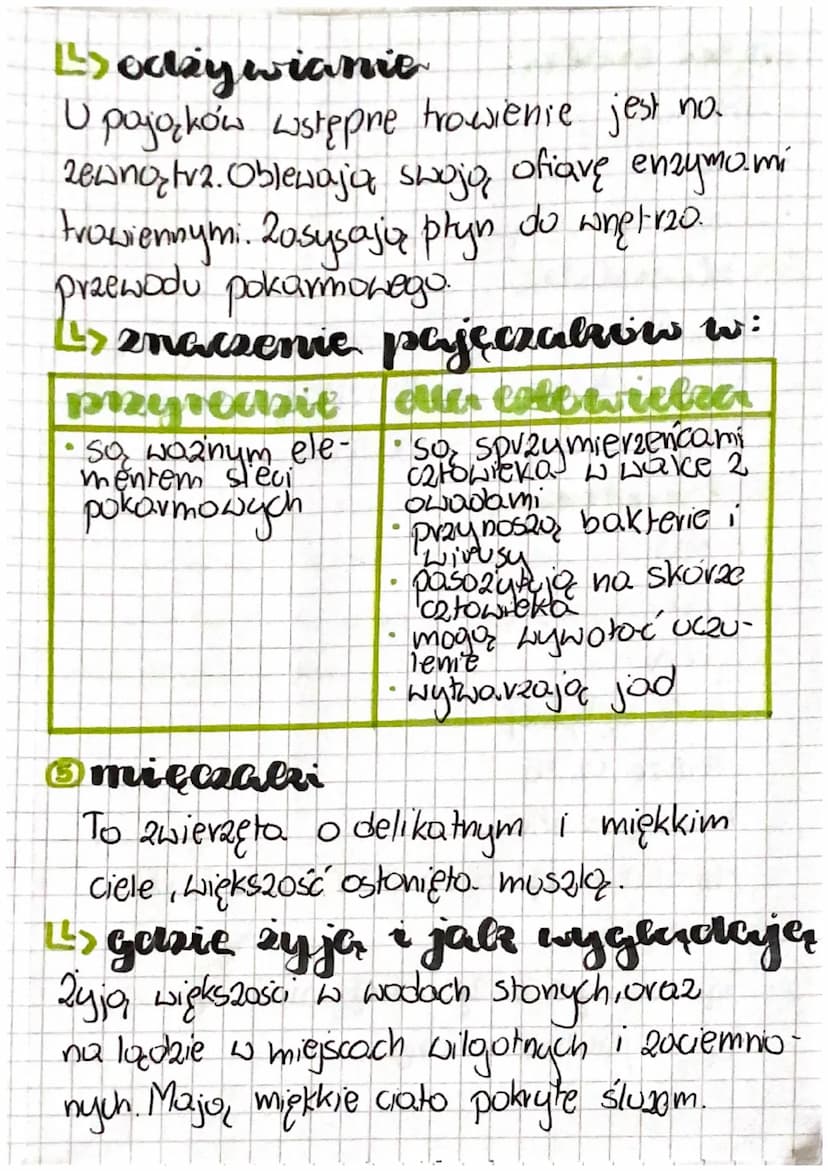 odżywianie
U pająków wstępne trawienie jest na
zewnątrz. Oblewają swoją ofiarę enzymami
trawiennymi. Zasysają płyn do wnętrza
przewodu pokarmowego.
znaczenie pajęczaków w:
przyrodzie
• są ważnym ele-
mentem sieci
pokarmowych
dla człowieka
• są sprzymierzeńcami
człowieka w walce z
owadami
• przynoszą bakterie i
wirusy
• pasożytują na skórze
człowieka
• mogą wywołać uczu-
lenie
• wytwarzają jad
⑤ mięczaki
To zwierzęta o delikatnym i miękkim
ciele, większość osłonięta muszlą.
gdzie żyją i jak wyglądają
Żyją większości w wodach słonych, oraz
na lądzie w miejscach wilgotnych i zaciemnio-
nych. Mają miękkie ciało pokryte śluzem.